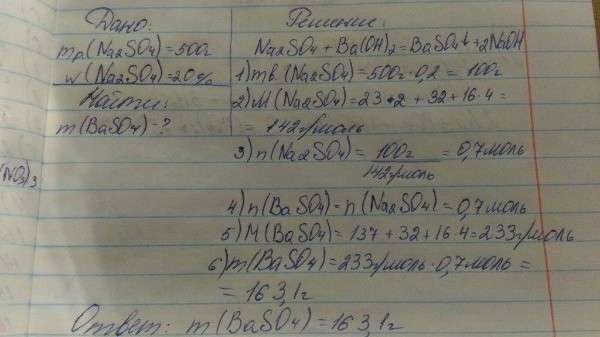 Дано:
mр.(Na2SO4)=500г
w(Na2SO4)=20%
Найти:
m(BaSO4)-?
(NO3)3
Решение:
Na2SO4+Ba(OH)2=BaSO4↓+2NaOH
1)mв.(Na2SO4)=500г·0,2=100г
2)M(Na2SO4)=23·2+32+16·4=
=142г/моль
3)n(Na2SO4)=100г/142г/моль=0,7моль
4)n(BaSO4)=n(Na2SO4)=0,7моль
5)M(BaSO4)=137+32+16·4=233г/моль
6)m(BaSO4)=233г/моль·0,7моль=
=163,1г
Ответ: m(BaSO4)=163,1г